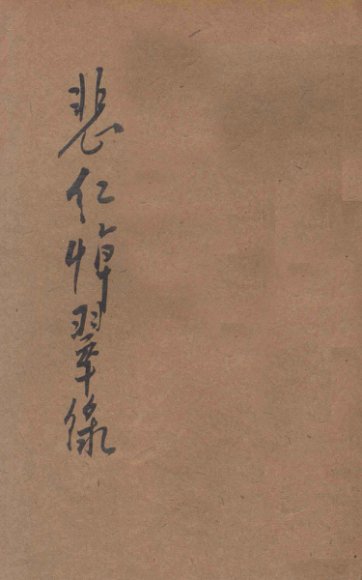 悲仁悼翠錄